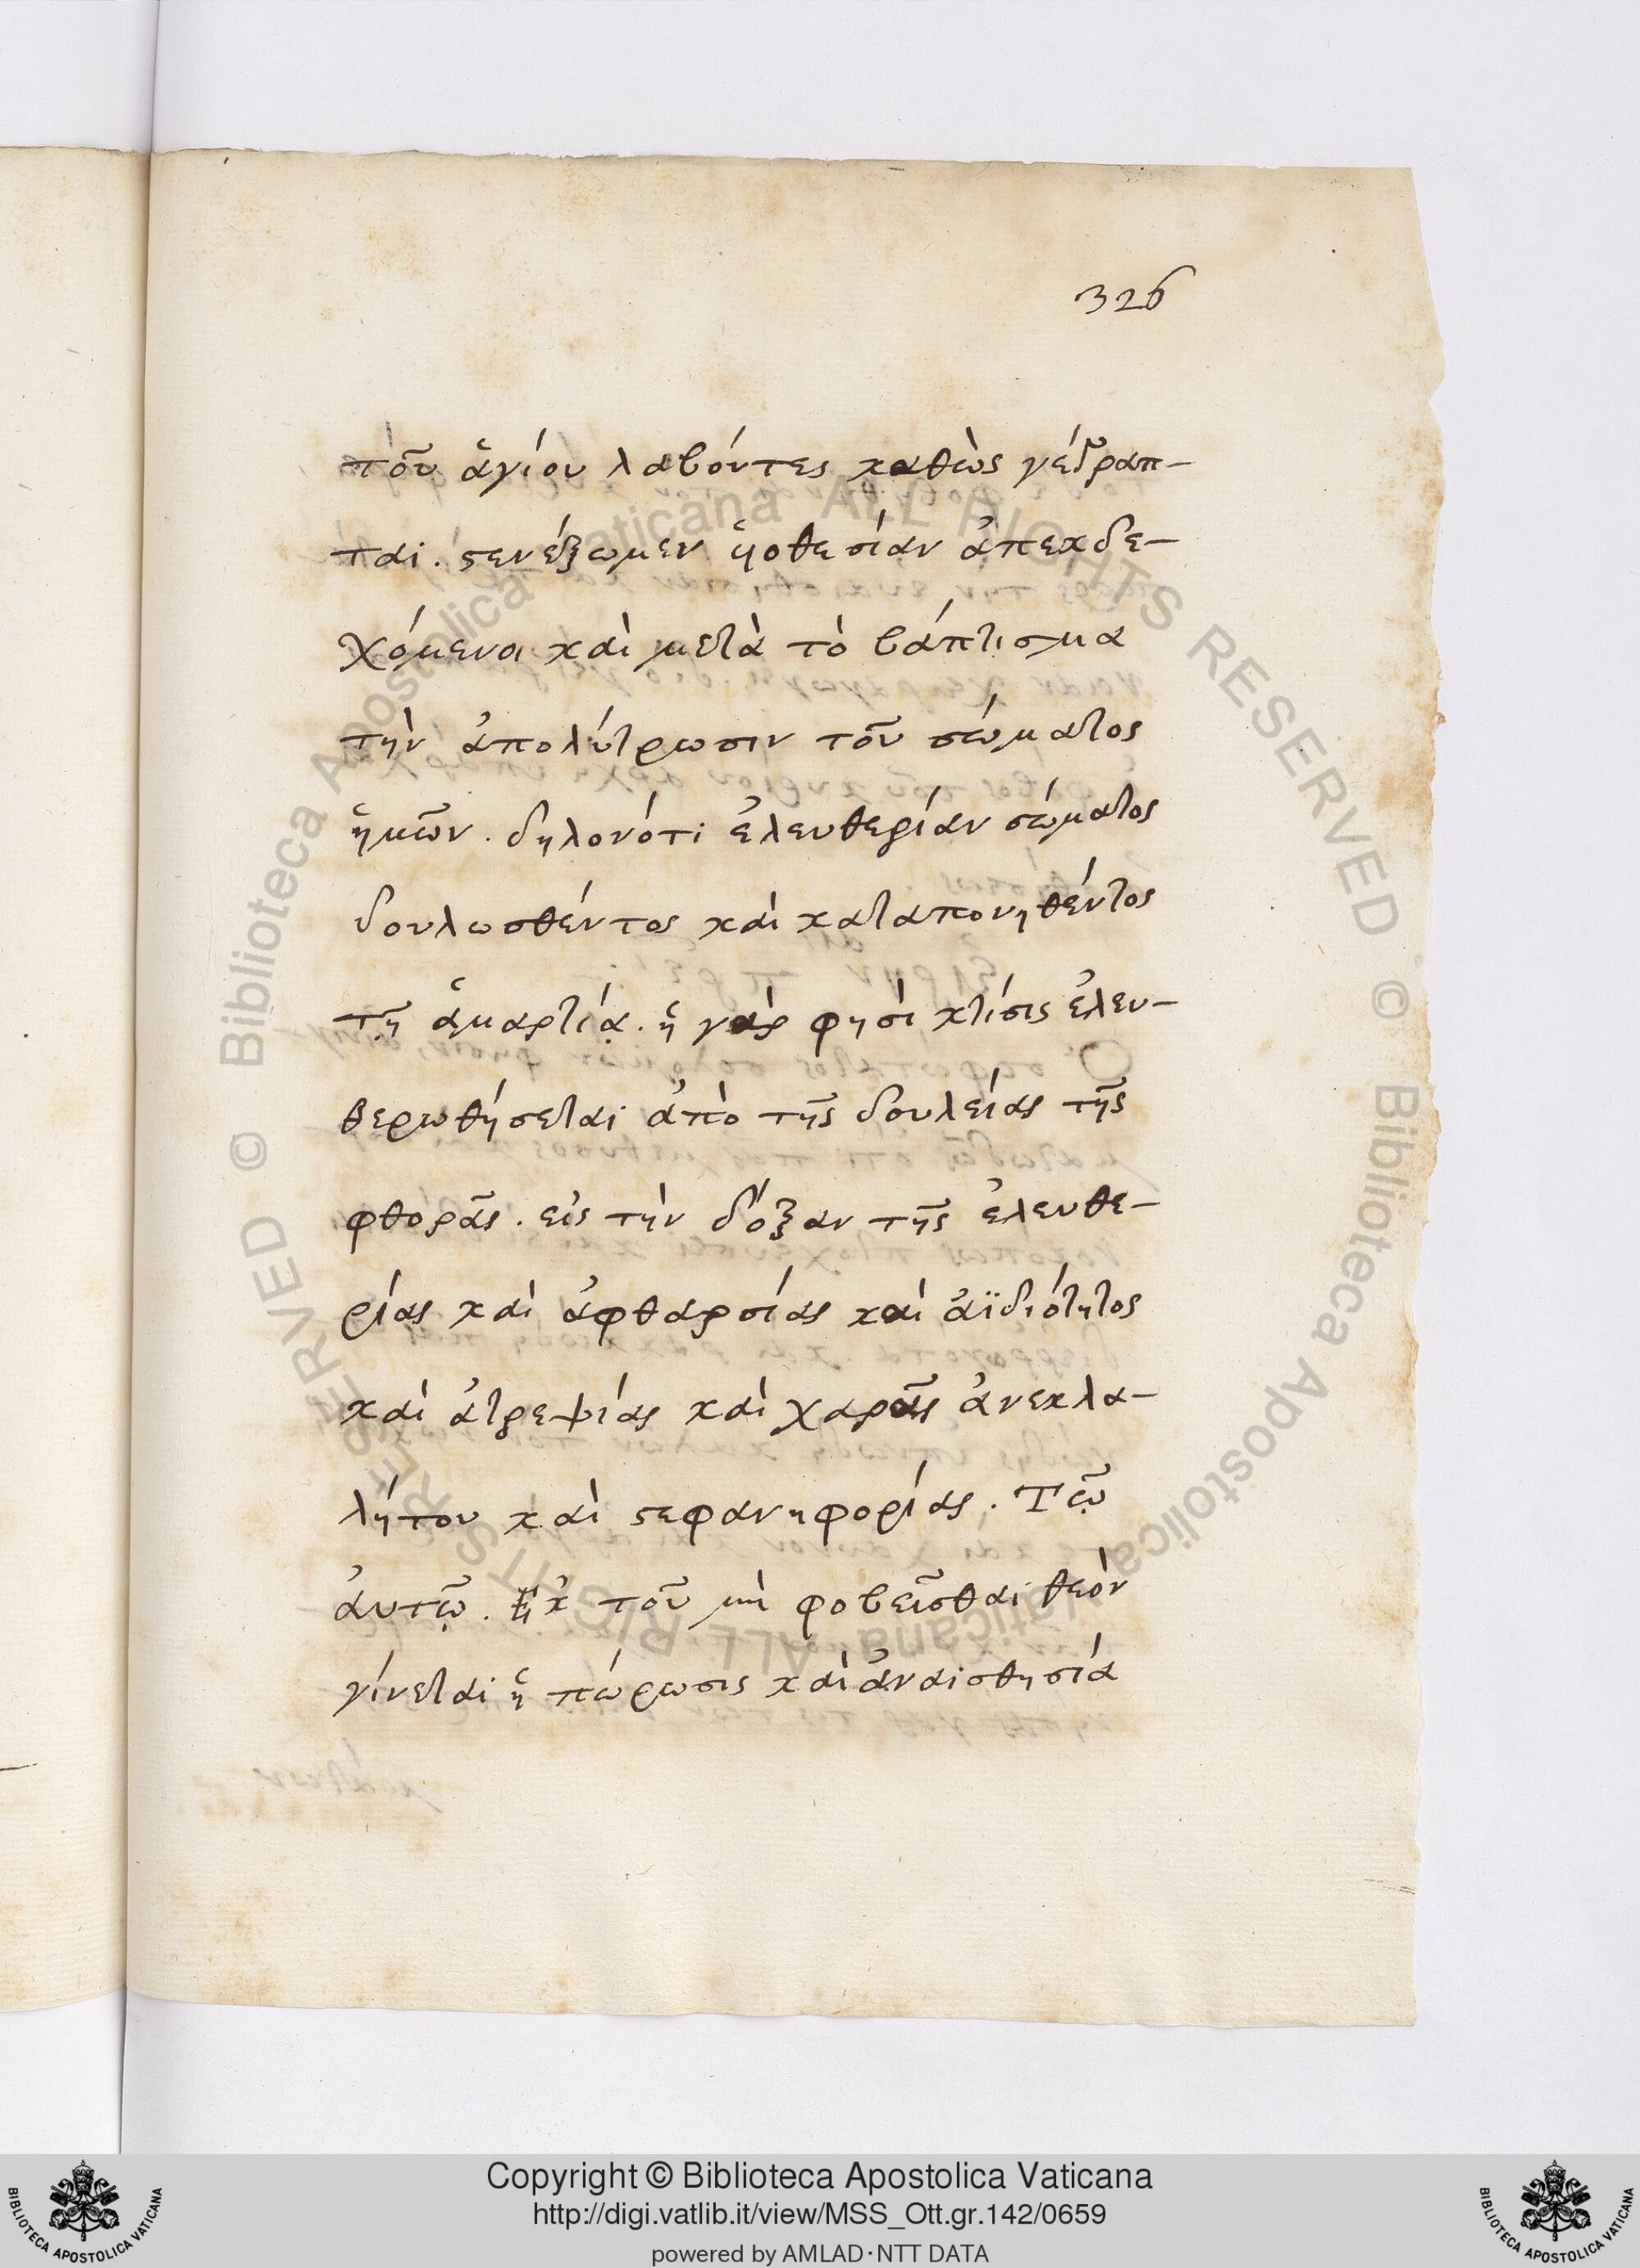 326
τοῦ ἁγίου λαβόντες καθὼς γέγραπ-
ται. στενάξωμεν ὑοθεσίαν ἀπεκδε-
χόμενοι καὶ μετὰ τὸ βάπτισμα
τὴν ἀπολύτρωσιν τοῦ σώματος
ἡμῶν. δηλονότι ἐλευθερίαν σώματος
δουλωσθέντος καὶ καταπονηθέντος
τῇ ἁμαρτίᾳ. ἡ γάρ φησὶ κτίσις ἐλευ-
θερωθήσεται ἀπὸ τῆς δουλείας τῆς
φθορᾶς. εἰς τὴν δόξαν τῆς ἐλευθε-
ρίας καὶ ἀφθαρσίας καὶ ἀϊδιότητος
καὶ ἀτρεψίας καὶ χαρᾶς ἀνεκλα-
λήτου καὶ στεφανηφορίας. Τῷ
ἀυτῷ. Ἐκ τοῦ μὴ φοβεῖσθαι θεὸν
γίνεται ἡ πώρωσις καὶ ἀναισθησία
Copyright © Biblioteca Apostolica Vaticana
http://digi.vatlib.it/view/MSS_Ott.gr.142/0659
powered by AMLAD·NTT DATA
BIBLIOTECA APOSTOLICA VATICANA
BIBLIOTECA APOSTOLICA VATICANA